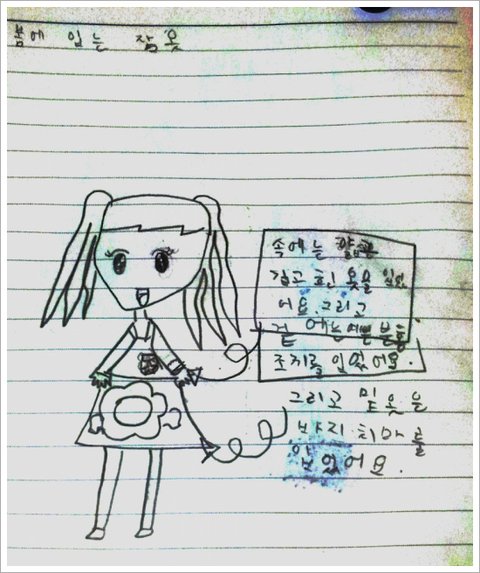 봄에 입는 잠옷
속에는
흰 옷을 입었
어요. 그리고
겉에는
조끼를 입었어요.
그리고 밑옷은
바지 치마를
입었어요.